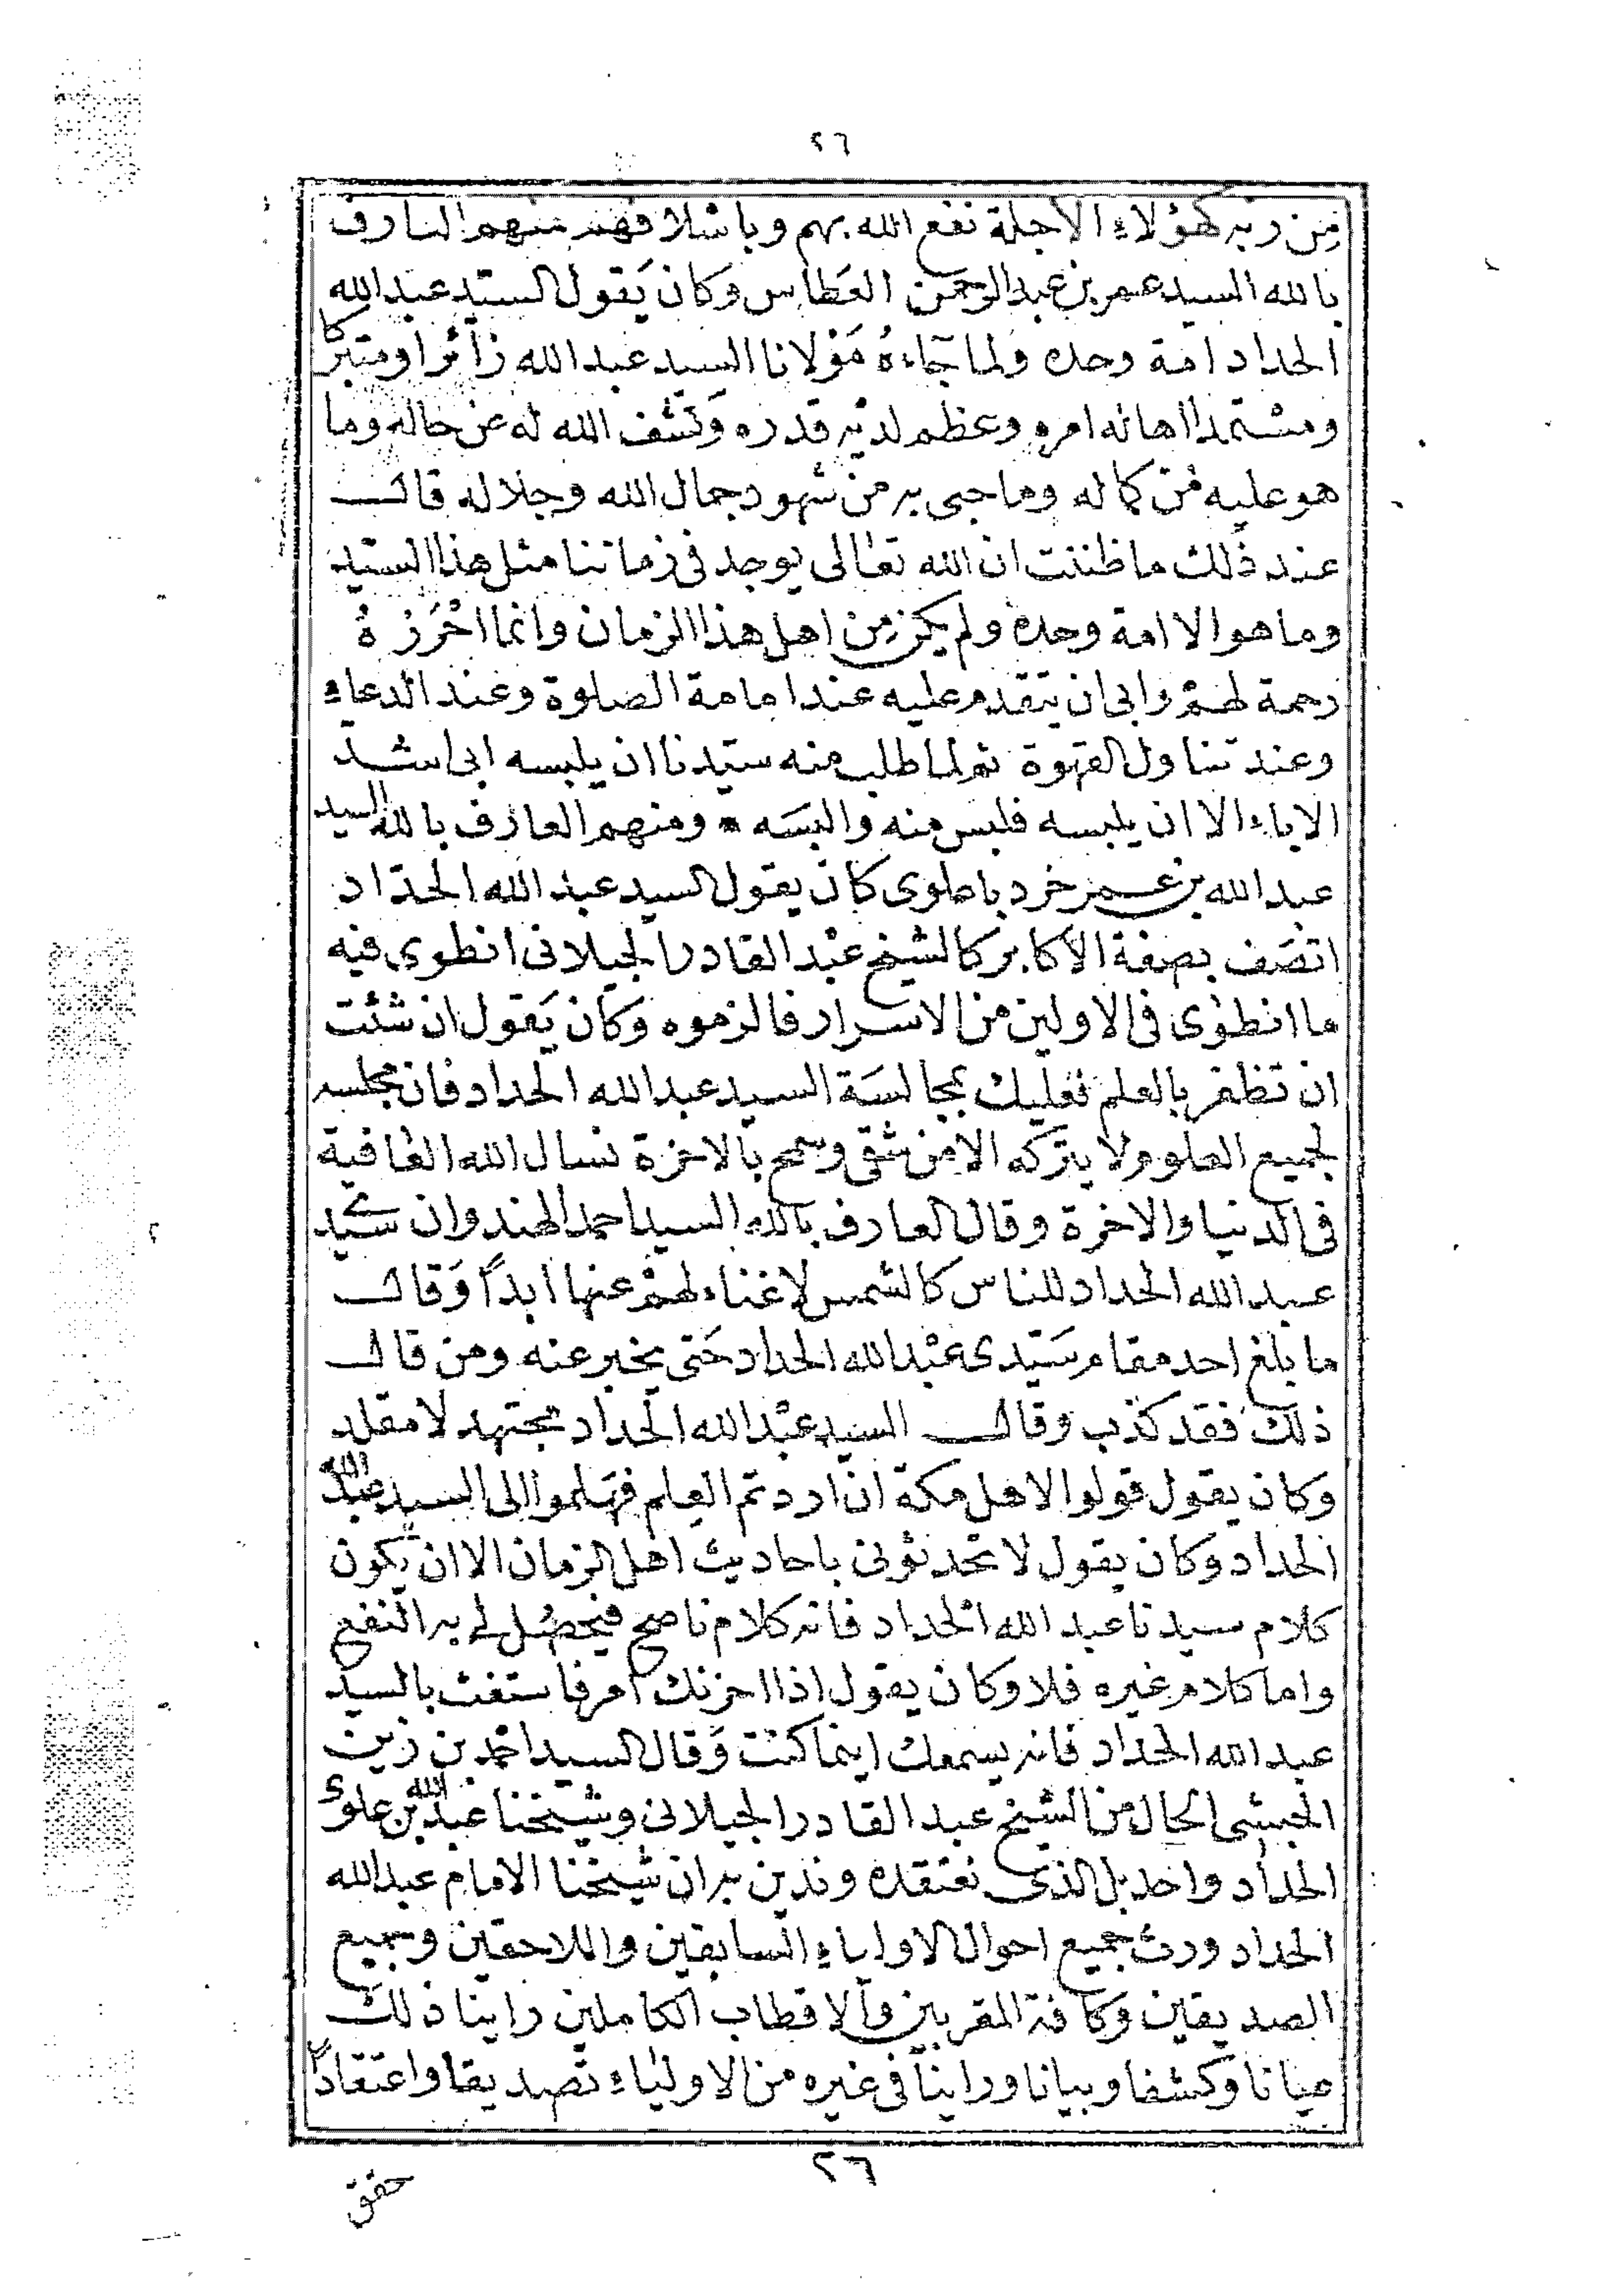 ٢٦
من ربه كهؤلاء الاجلة نفع الله بهم وباسلافهم فمنهم العارف
بالله السيد عمر بن عبد الرحمن العطاس وكان يقول السيد عبد الله
الحداد امة وحده ولما جاءه مولانا السيد عبد الله زائرا ومتبركا
ومستمدا اهاله امره وعظم لديه قدره وكشف الله له عن حاله وما
هو عليه من كماله وما حبى به من شهود جمال الله وجلاله قال
عند ذلك ما ظننت ان الله تعالى يوجد فى زماننا مثل هذا السيد
وما هو الا امة وحده ولم يكن من اهل هذا الزمان وانما اخرزه
رحمة لهم وابى ان يتقدم عليه عند امامة الصلوة وعند الدعاء
وعند تناول القهوة ثم لما طلب منه سيدنا ان يلبسه ابى اشد
الاباء الا ان يلبسه فلبس منه والبسه * ومنهم العارف بالله السيد
عبد الله بن عمر خرد باعلوى كان يقول السيد عبد الله الحداد
اتصف بصفة الاكابر كالشيخ عبد القادر الجيلانى انطوى فيه
ما انطوى فى الاولين من الاسرار فالزموه وكان يقول ان شئت
ان تظفر بالعلم فعليك بمجالسة السيد عبد الله الحداد فان مجلسه
لجميع العلوم ولا يتركه الا من شقى وسمح بالاخرة نسال الله العافية
فى الدنيا والاخرة وقال العارف بالله السيد احمد الهندوان سيد
عبد الله الحداد للناس كالشمس لا غناء لهم عنها ابدا وقال
ما بلغ احد مقام سيدى عبد الله الحداد حتى يخبر عنه ومن قال
ذلك فقد كذب وقال السيد عبد الله الحداد مجتهد لا مقلد
وكان يقول قولوا لاهل مكة ان اردتم العلم فهلموا الى السيد عبد الله
الحداد وكان يقول لا تحدثونى باحاديث اهل الزمان الا ان يكون
كلام سيدنا عبد الله الحداد فانه كلام ناصح فيحصل لى به النفع
واما كلام غيره فلا وكان يقول اذا احزنك امر فاستغث بالسيد
عبد الله الحداد فانه يسمعك اينما كنت وقال السيد احمد بن زين
الحبشى الحال من الشيخ عبد القادر الجيلانى وشيخنا عبد الله بن علوى
الحداد واحد بل الذى نعتقده وندين به ان شيخنا الامام عبد الله
الحداد ورث جميع احوال الاولياء السابقين واللاحقين وجميع
الصديقين وكافة المقربين والاقطاب الكاملين راينا ذلك
عيانا وكشفا وبيانا وراينا فى غيره من الاولياء تصديقا واعتقادا
٢٦
حقق